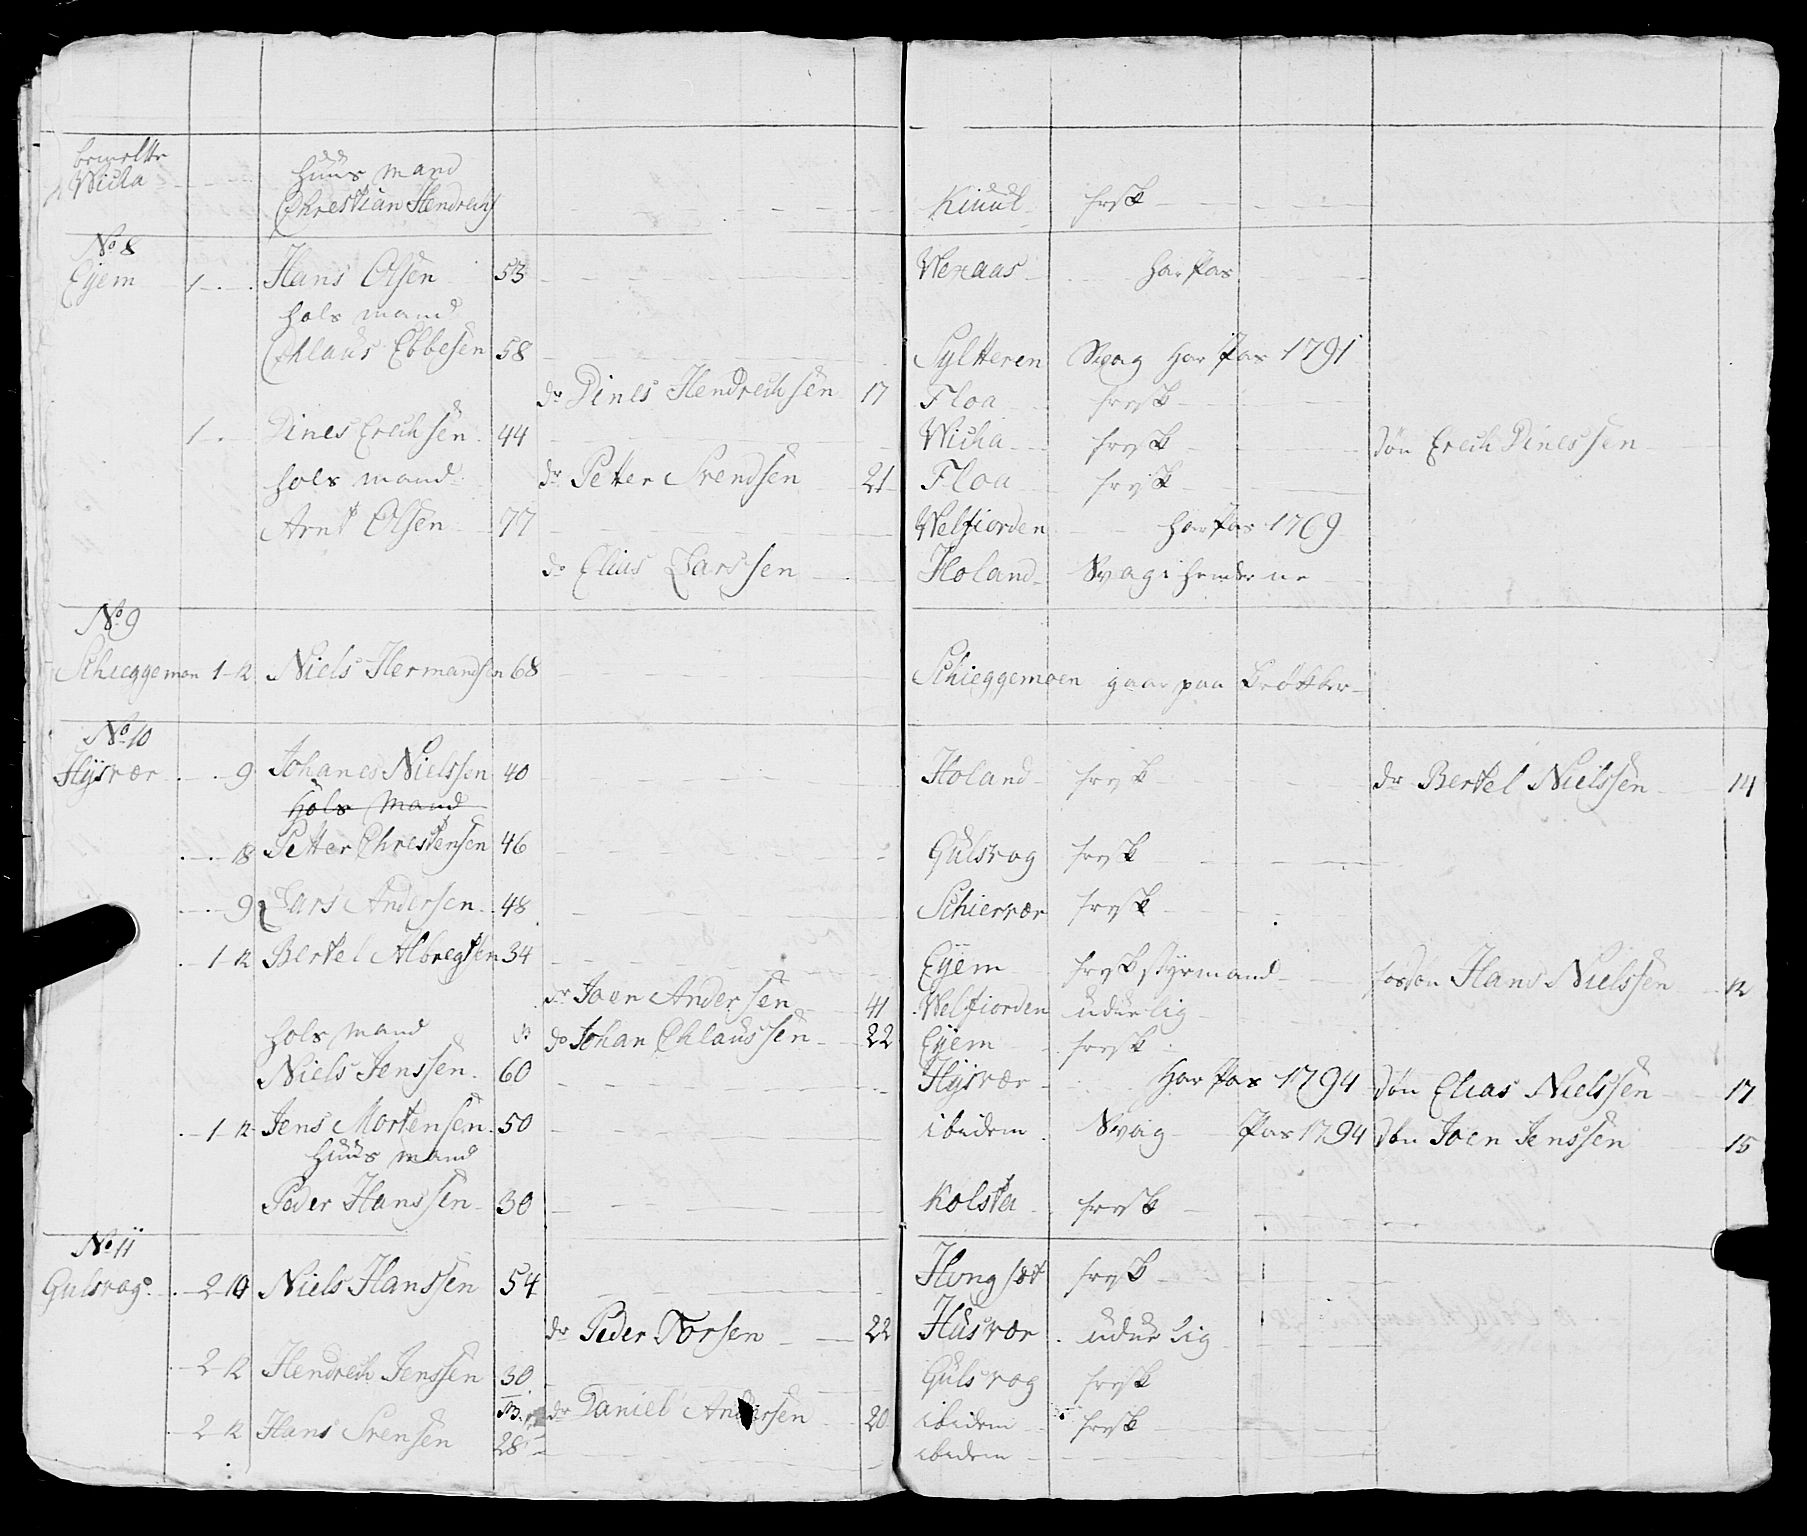 bemelte
Wicha
huus mand
Chrestian Hendrechs Kiuul frisk
No 8
Eyem 1 Hans Olsen 53 Weraas har Pas
hols mand
Chlaus Ebbesen 58 Sylteren Svag har Pas 1791
dr Dines Hendrechsen 17 Floa frisk
1 Dines Erechsen 44 Wicha frisk Søn Erech Dinessen
hols mand dr Petter Svendsen 21 Floa frisk
Arnt Olsen 77 Welfiorden har Pas 1769
do Elias Larssen Holand Svag i henderne
No 9
Schieggemoen 1-12 Niels Hermandsen 68 Schieggemoen gaar paa Krøkker
No 10
Hysvær 9 Johanes Nielssen 40 Holand frisk dr Bertel Nielssen 14
hols mand
18 Petter Chrestensen 46 Gulsvog frisk
9 Lars Andersen 48 Schiervær frisk
1-12 Bertel Albregtsen 34 Eyem frisk styrmand fosøn Hans Nielssen 12
dr Joen Andersen 41 Welfiorden uduelig
hols mand do Johan Chlaussen 22 Eyem frisk
Niels Jenssen 60 Hysvær har Pas 1794 Søn Elias Nielssen 17
1-12 Jens Mortensen 50 ibidem Svag Pas 1794 Søn Joen Jenssen 15
huus mand
Peder Hanssen 30 Kolsta frisk
No 11
Gulsvog 2 Niels Hanssen 54 Hongsæt frisk
dr Peder Torsen 22 Husvær uduelig
2-12 Hendrech Jenssen 30 Gulsvog frisk
dr Daniel Andersen 20 ibidem frisk
2-12 Hans Svensen 28 ibidem